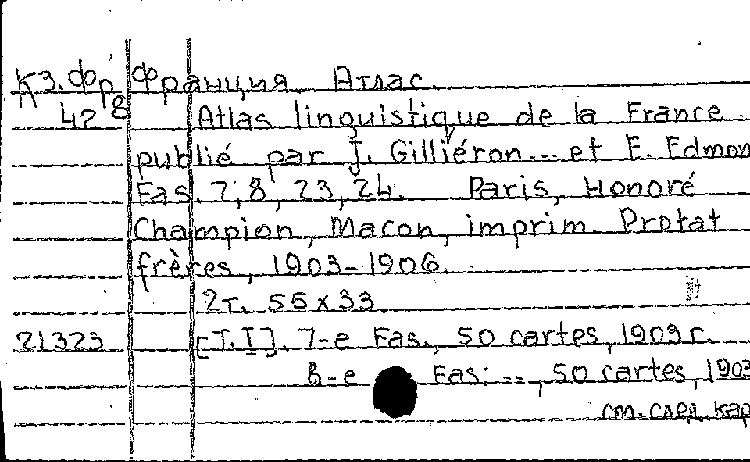 КЗ.Фр Франция. Атлас.
42 8 Atlas linguistique de la France
publié par J. Gilliéron... et E. Edmon
Fas. 7, 8, 23, 24. Paris, Honoré
Champion, Macon, imprim. Protat
frères, 1903-1906.
2т. 55x33
21323 [Т.I]. 7-e Fas., 50 cartes, 1903г.
8-e Fas. .., 50 cartes, 1903
см. след. кар